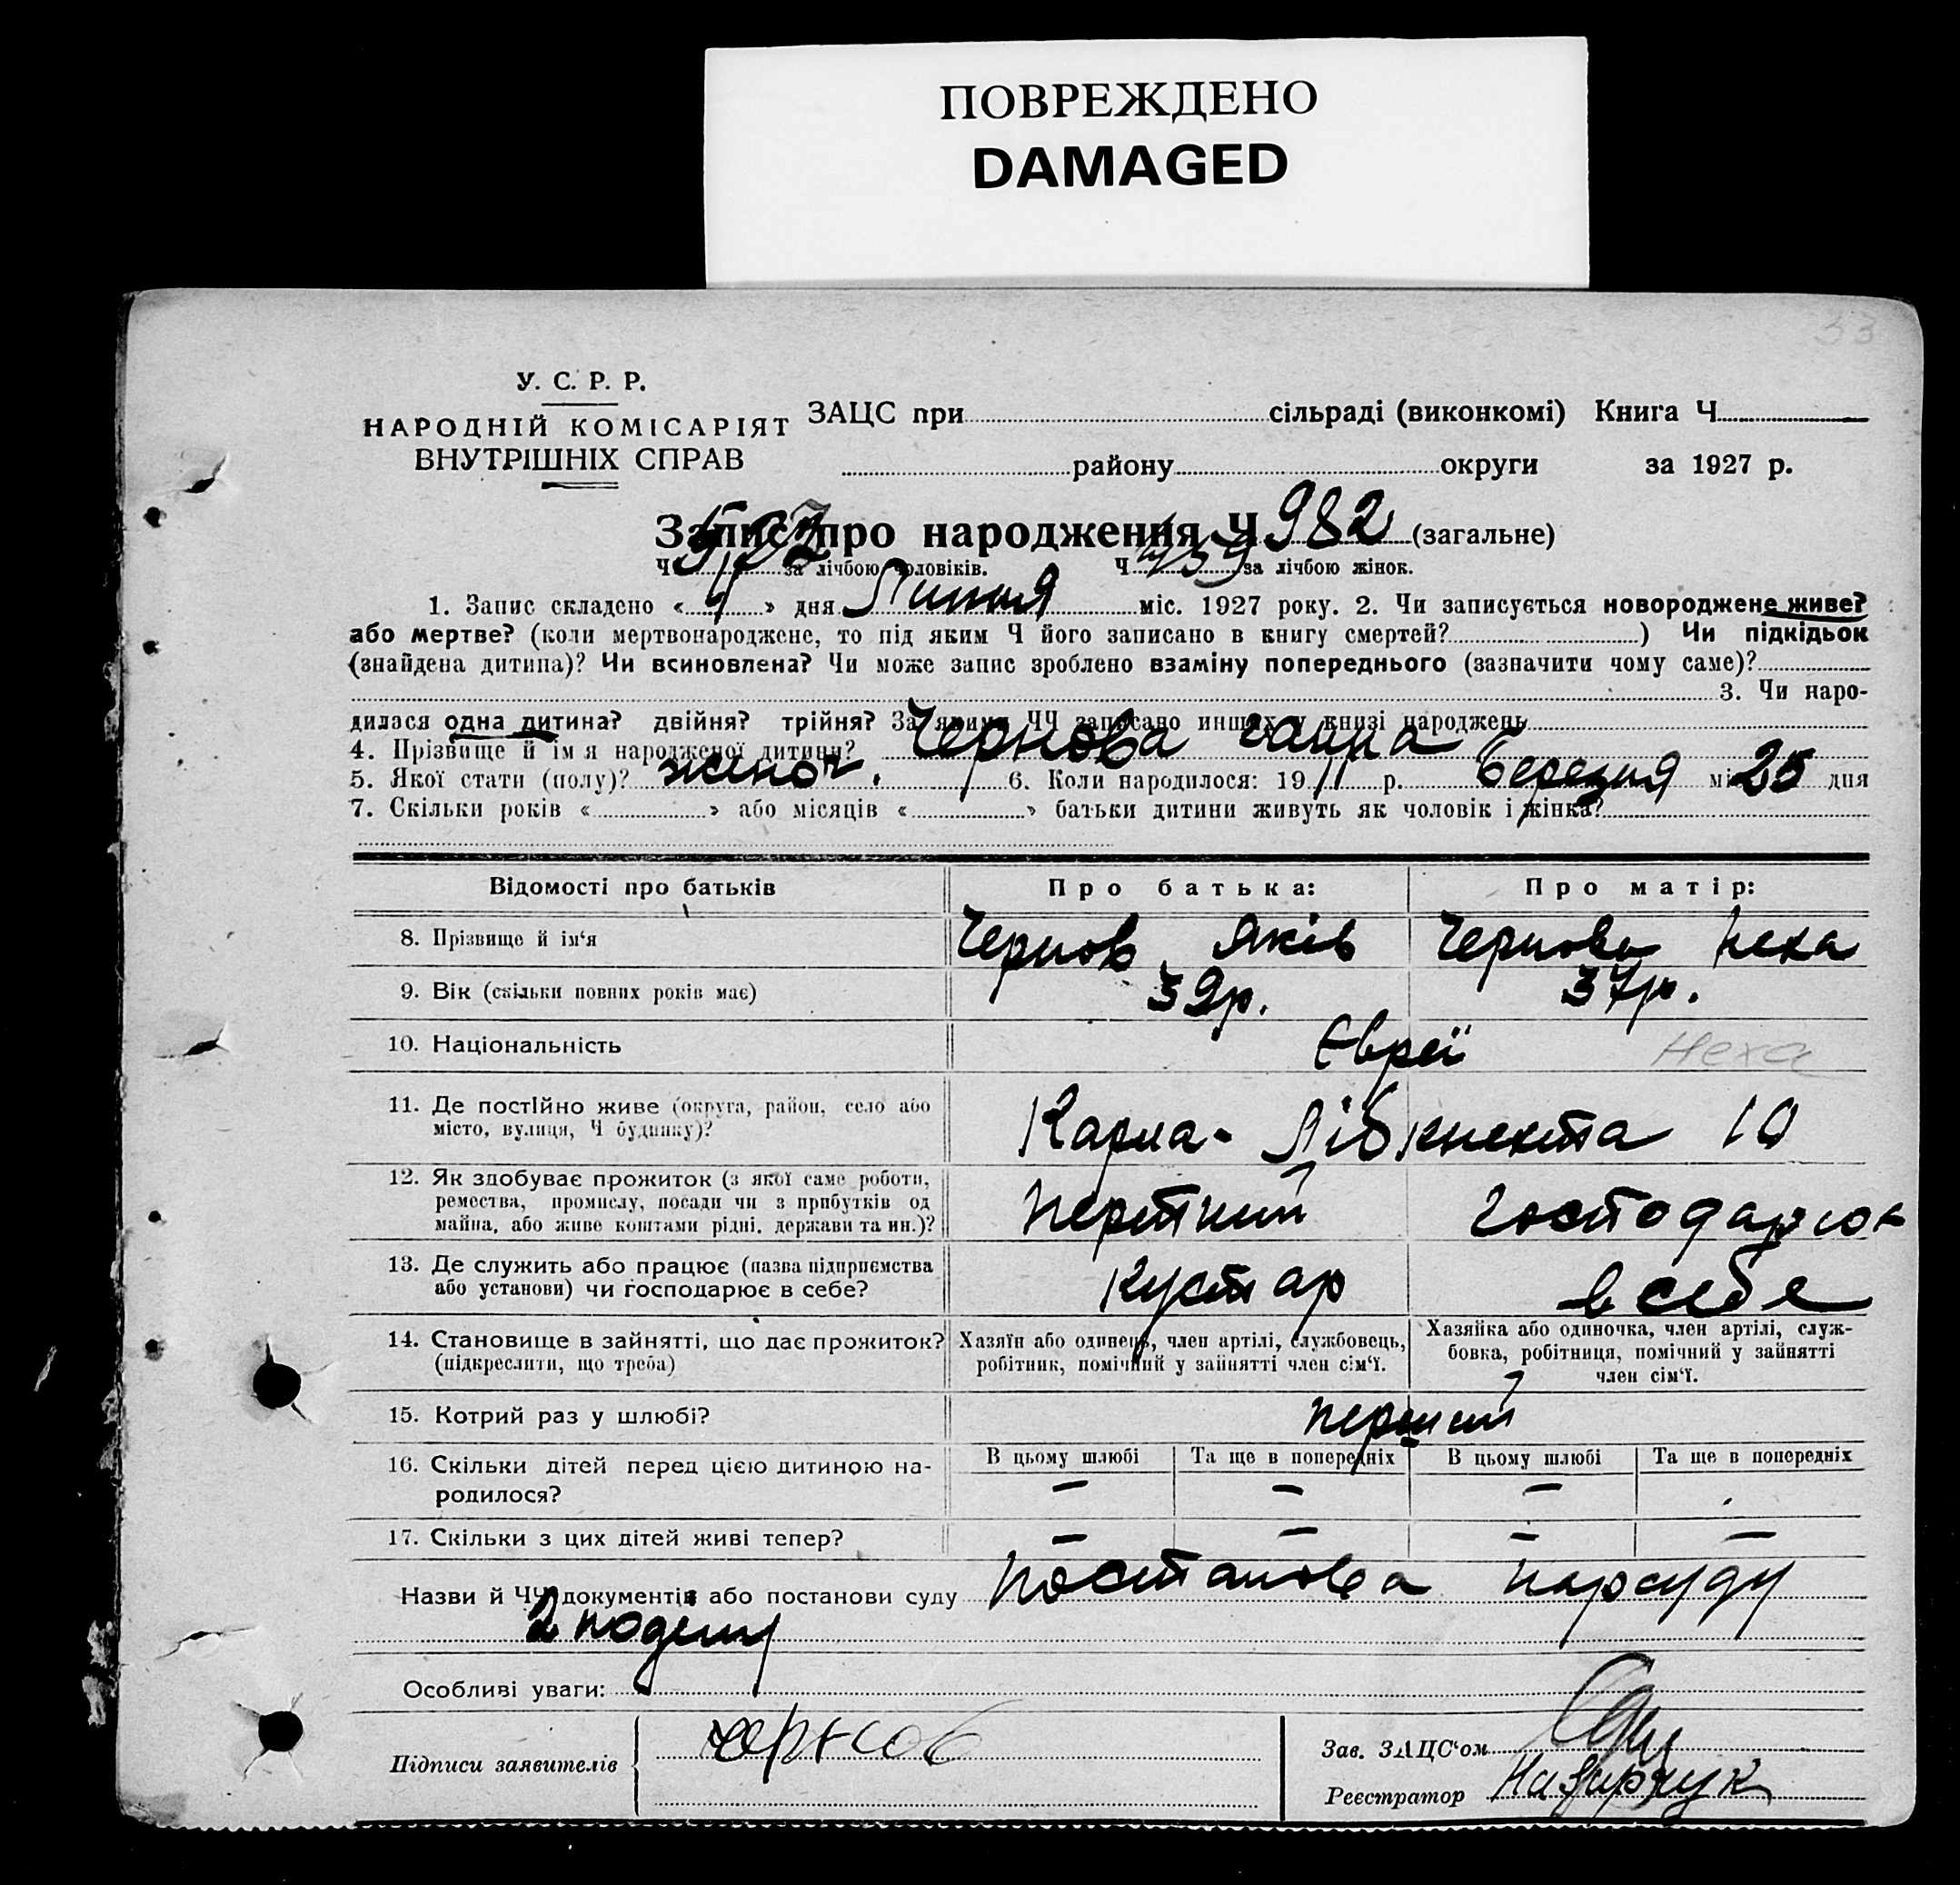 ПОВРЕЖДЕНО
DAMAGED
33
У. С. Р. Р.
НАРОДНІЙ КОМІСАРІЯТ
ВНУТРІШНІХ СПРАВ
ЗАЦС при сільраді (виконкомі) Книга Ч.
району округи за 1927 р.
Запис про народження Ч 982 (загальне)
Ч за лічбою чоловіків. Ч 459 за лічбою жінок.
1. Запис складено « » дня Липня міс. 1927 року. 2. Чи записується новороджене живе?
або мертве? (коли мертвонароджене, то під яким Ч його записано в книгу смертей? ) Чи підкідьок
(знайдена дитина)? Чи всиновлена? Чи може запис зроблено взаміну попереднього (зазначити чому саме)?
3. Чи наро-
дилася одна дитина? двійня? трійня? За якими ЧЧ записано инших у книзі народжень
4. Прізвище й ім я народженої дитини? Чернова Ганна
5. Якої стати (полу)? жіноч. 6. Коли народилося: 19 11 р. березня міс 25 дня
7. Скільки років « » або місяців « » батьки дитини живуть як чоловік і жінка?
Відомості про батьків Про батька: Про матір:
8. Прізвище й ім‘я Чернов Яків Чернова Неха
9. Вік (скільки повних років має) 39р. 37р.
10. Національність Євреї Неха
11. Де постійно живе (округа, район, село або
місто, вулиця, Ч будинку)? Карла-Лібкнехта 10
12. Як здобуває прожиток (з якої саме роботи,
ремества, промислу, посади чи з прибутків од
майна, або живе коштами рідні, держави та ин.)?
господарює
13. Де служить або працює (назва підприємства
або установи) чи господарює в себе? Кустар в себе
14. Становище в зайнятті, що дає прожиток?
(підкреслити, що треба)
Хазяїн або одинець, член артілі, службовець,
робітник, помічний у зайнятті член сім‘ї.
Хазяйка або одиночка, член артілі, служ-
бовка, робітниця, помічний у зайнятті
член сім‘ї.
15. Котрий раз у шлюбі? перший
16. Скільки дітей перед цією дитиною на-
родилося?
В цьому шлюбі Та ще в попередніх В цьому шлюбі Та ще в попередніх
— — —
17. Скільки з цих дітей живі тепер? — — — —
Назви й ЧЧ документів або постанови суду Постанова нарсуду
Особливі уваги:
Підписи заявителів Чернов
Зав. ЗАЦС‘ом
Реєстратор Назарчук